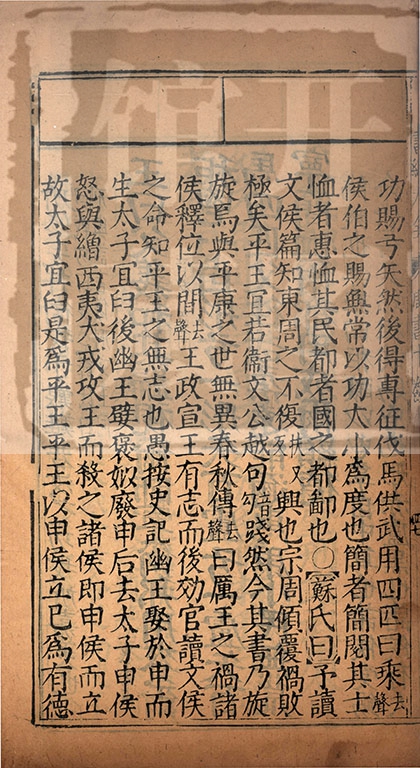 功賜弓矢然後得專征伐馬供武用四匹曰乘去聲
侯伯之賜無常以功大小爲度也簡者簡閱其士
恤者惠恤其民都者國之都鄙也○蘇氏曰予讀
文侯篇知東周之不復扶又反興也宗周傾覆禍敗
極矣平王宜若衞文公越句音勾踐然今其書乃旋
旋焉與平康之世無異春秋傳去聲曰厲王之禍諸
侯釋位以間去聲王政宣王有志而後効官讀文侯
之命知平王之無志也愚按史記幽王娶於申而
生太子宜臼後幽王嬖褒姒廢申后去太子申侯
怒與繒西夷犬戎攻王而殺之諸侯即申侯而立
故太子宜臼是爲平王平王以申侯立已爲有德